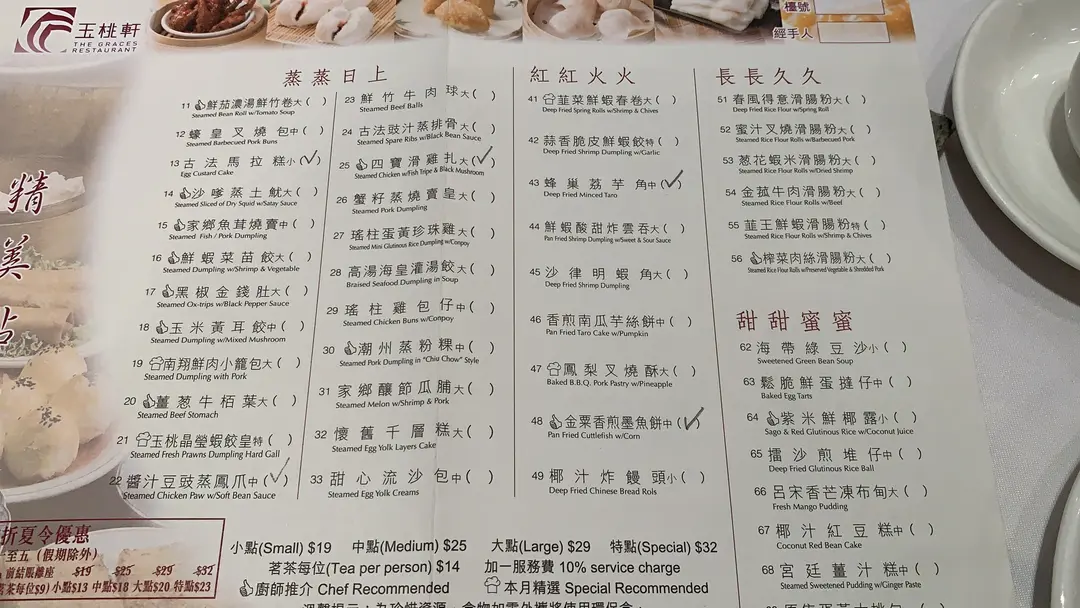 玉桃軒
THE GRACES
RESTAURANT
檯號
經手人
精
美
點
蒸蒸日上
11 鮮茄濃湯鮮竹卷大 ( )
Steamed Bean Roll w/Tomato Soup
12 蠔皇叉燒包中 ( )
Steamed Barbecued Pork Buns
13 古法馬拉糕小 (✓)
Egg Custard Cake
14 沙嗲蒸土魷大 ( )
Steamed Sliced of Dry Squid w/Satay Sauce
15 家鄉魚茸燒賣中 ( )
Steamed Fish / Pork Dumpling
16 鮮蝦菜苗餃大 ( )
Steamed Dumpling w/Shrimp & Vegetable
17 黑椒金錢肚大 ( )
Steamed Ox-trips w/Black Pepper Sauce
18 玉米黃耳餃中 ( )
Steamed Dumpling w/Mixed Mushroom
19 南翔鮮肉小籠包大 ( )
Steamed Dumpling with Pork
20 薑葱牛栢葉大 ( )
Steamed Beef Stomach
21 玉桃晶瑩蝦餃皇特 ( )
Steamed Fresh Prawns Dumpling Hard Gall
22 醬汁豆豉蒸鳳爪中 (✓)
Steamed Chicken Paw w/Soft Bean Sauce
23 鮮竹牛肉球大 ( )
Steamed Beef Balls
24 古法豉汁蒸排骨大 ( )
Steamed Spare Ribs w/Black Bean Sauce
25 四寶滑雞扎大 (✓)
Steamed Chicken w/Fish Tripe & Black Mushroom
26 蟹籽蒸燒賣皇大 ( )
Steamed Pork Dumpling
27 瑤柱蛋黃珍珠雞大 ( )
Steamed Mini Glutinous Rice Dumpling w/Conpoy
28 高湯海皇灌湯餃大 ( )
Braised Seafood Dumpling in Soup
29 瑤柱雞包仔中 ( )
Steamed Chicken Buns w/Conpoy
30 潮州蒸粉粿中 ( )
Steamed Pork Dumpling in "Chiu Chow" Style
31 家鄉釀節瓜脯大 ( )
Steamed Melon w/Shrimp & Pork
32 懷舊千層糕大 ( )
Steamed Egg Yolk Layers Cake
33 甜心流沙包中 ( )
Steamed Egg Yolk Creams
紅紅火火
41 韮菜鮮蝦春卷大 ( )
Deep Fried Spring Rolls w/Shrimp & Chives
42 蒜香脆皮鮮蝦餃特 ( )
Deep Fried Shrimp Dumpling w/Garlic
43 蜂巢荔芋角中 (✓)
Deep Fried Minced Taro
44 鮮蝦酸甜炸雲吞大 ( )
Pan Fried Shrimp Dumpling w/Sweet & Sour Sauce
45 沙律明蝦角大 ( )
Deep Fried Shrimp Dumpling
46 香煎南瓜芋絲餅中 ( )
Pan Fried Taro Cake w/Pumpkin
47 鳳梨叉燒酥大 ( )
Baked B.B.Q. Pork Pastry w/Pineapple
48 金粟香煎墨魚餅中 (✓)
Pan Fried Cuttlefish w/Corn
49 椰汁炸饅頭小 ( )
Deep Fried Chinese Bread Rols
長長久久
51 春風得意滑腸粉大 ( )
Deep Fried Rice Flour w/Spring Roll
52 蜜汁叉燒滑腸粉大 ( )
Steamed Rice Flour Rolls w/Barbecued Pork
53 葱花蝦米滑腸粉大 ( )
Steamed Rice Flour Rolls w/Dried Shrimp
54 金菰牛肉滑腸粉大 ( )
Steamed Rice Flour Rolls w/Beef
55 韮王鮮蝦滑腸粉特 ( )
Steamed Rice Flour Rolls w/Shrimp & Chives
56 榨菜肉絲滑腸粉大 ( )
Steamed Rice Flour Rolls w/Preserved Vegetable & Shredded Pork
甜甜蜜蜜
62 海帶綠豆沙小 ( )
Sweetened Green Bean Soup
63 鬆脆鮮蛋撻仔中 ( )
Baked Egg Tarts
64 紫米鮮椰露小 ( )
Sago & Red Glutinous Rice w/Coconut Juice
65 擂沙煎堆仔中 ( )
Deep Fried Glutinous Rice Ball
66 呂宋香芒凍布甸大 ( )
Fresh Mango Pudding
67 椰汁紅豆糕中 ( )
Coconut Red Bean Cake
68 宮廷薑汁糕中 ( )
Steamed Sweetened Pudding w/Ginger Paste
折夏令優惠
至五 (假期除外)
前結賬離座 $19 $25 $29 $32
茗茶每位$9) 小點$13 中點$18 大點$20 特點$23
小點(Small) $19 中點(Medium) $25 大點(Large) $29 特點(Special) $32
茗茶每位(Tea per person) $14 加一服務費 10% service charge
廚師推介 Chef Recommended 本月精選 Special Recommended